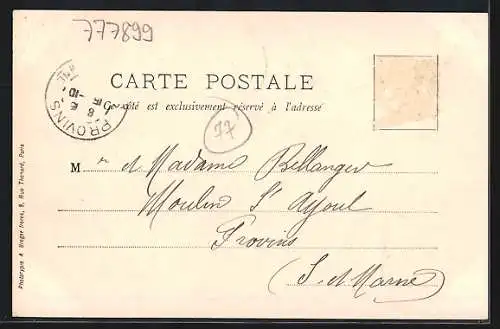 777899
CARTE POSTALE
Ce côté est exclusivement réservé à l'adresse
PROVINS
77
Mr et Madame Bellanger
Moulin St Ayoul
Provins
(S. et Marne)
Phototypie A. Breger frères, 9, Rue Thénard, Paris